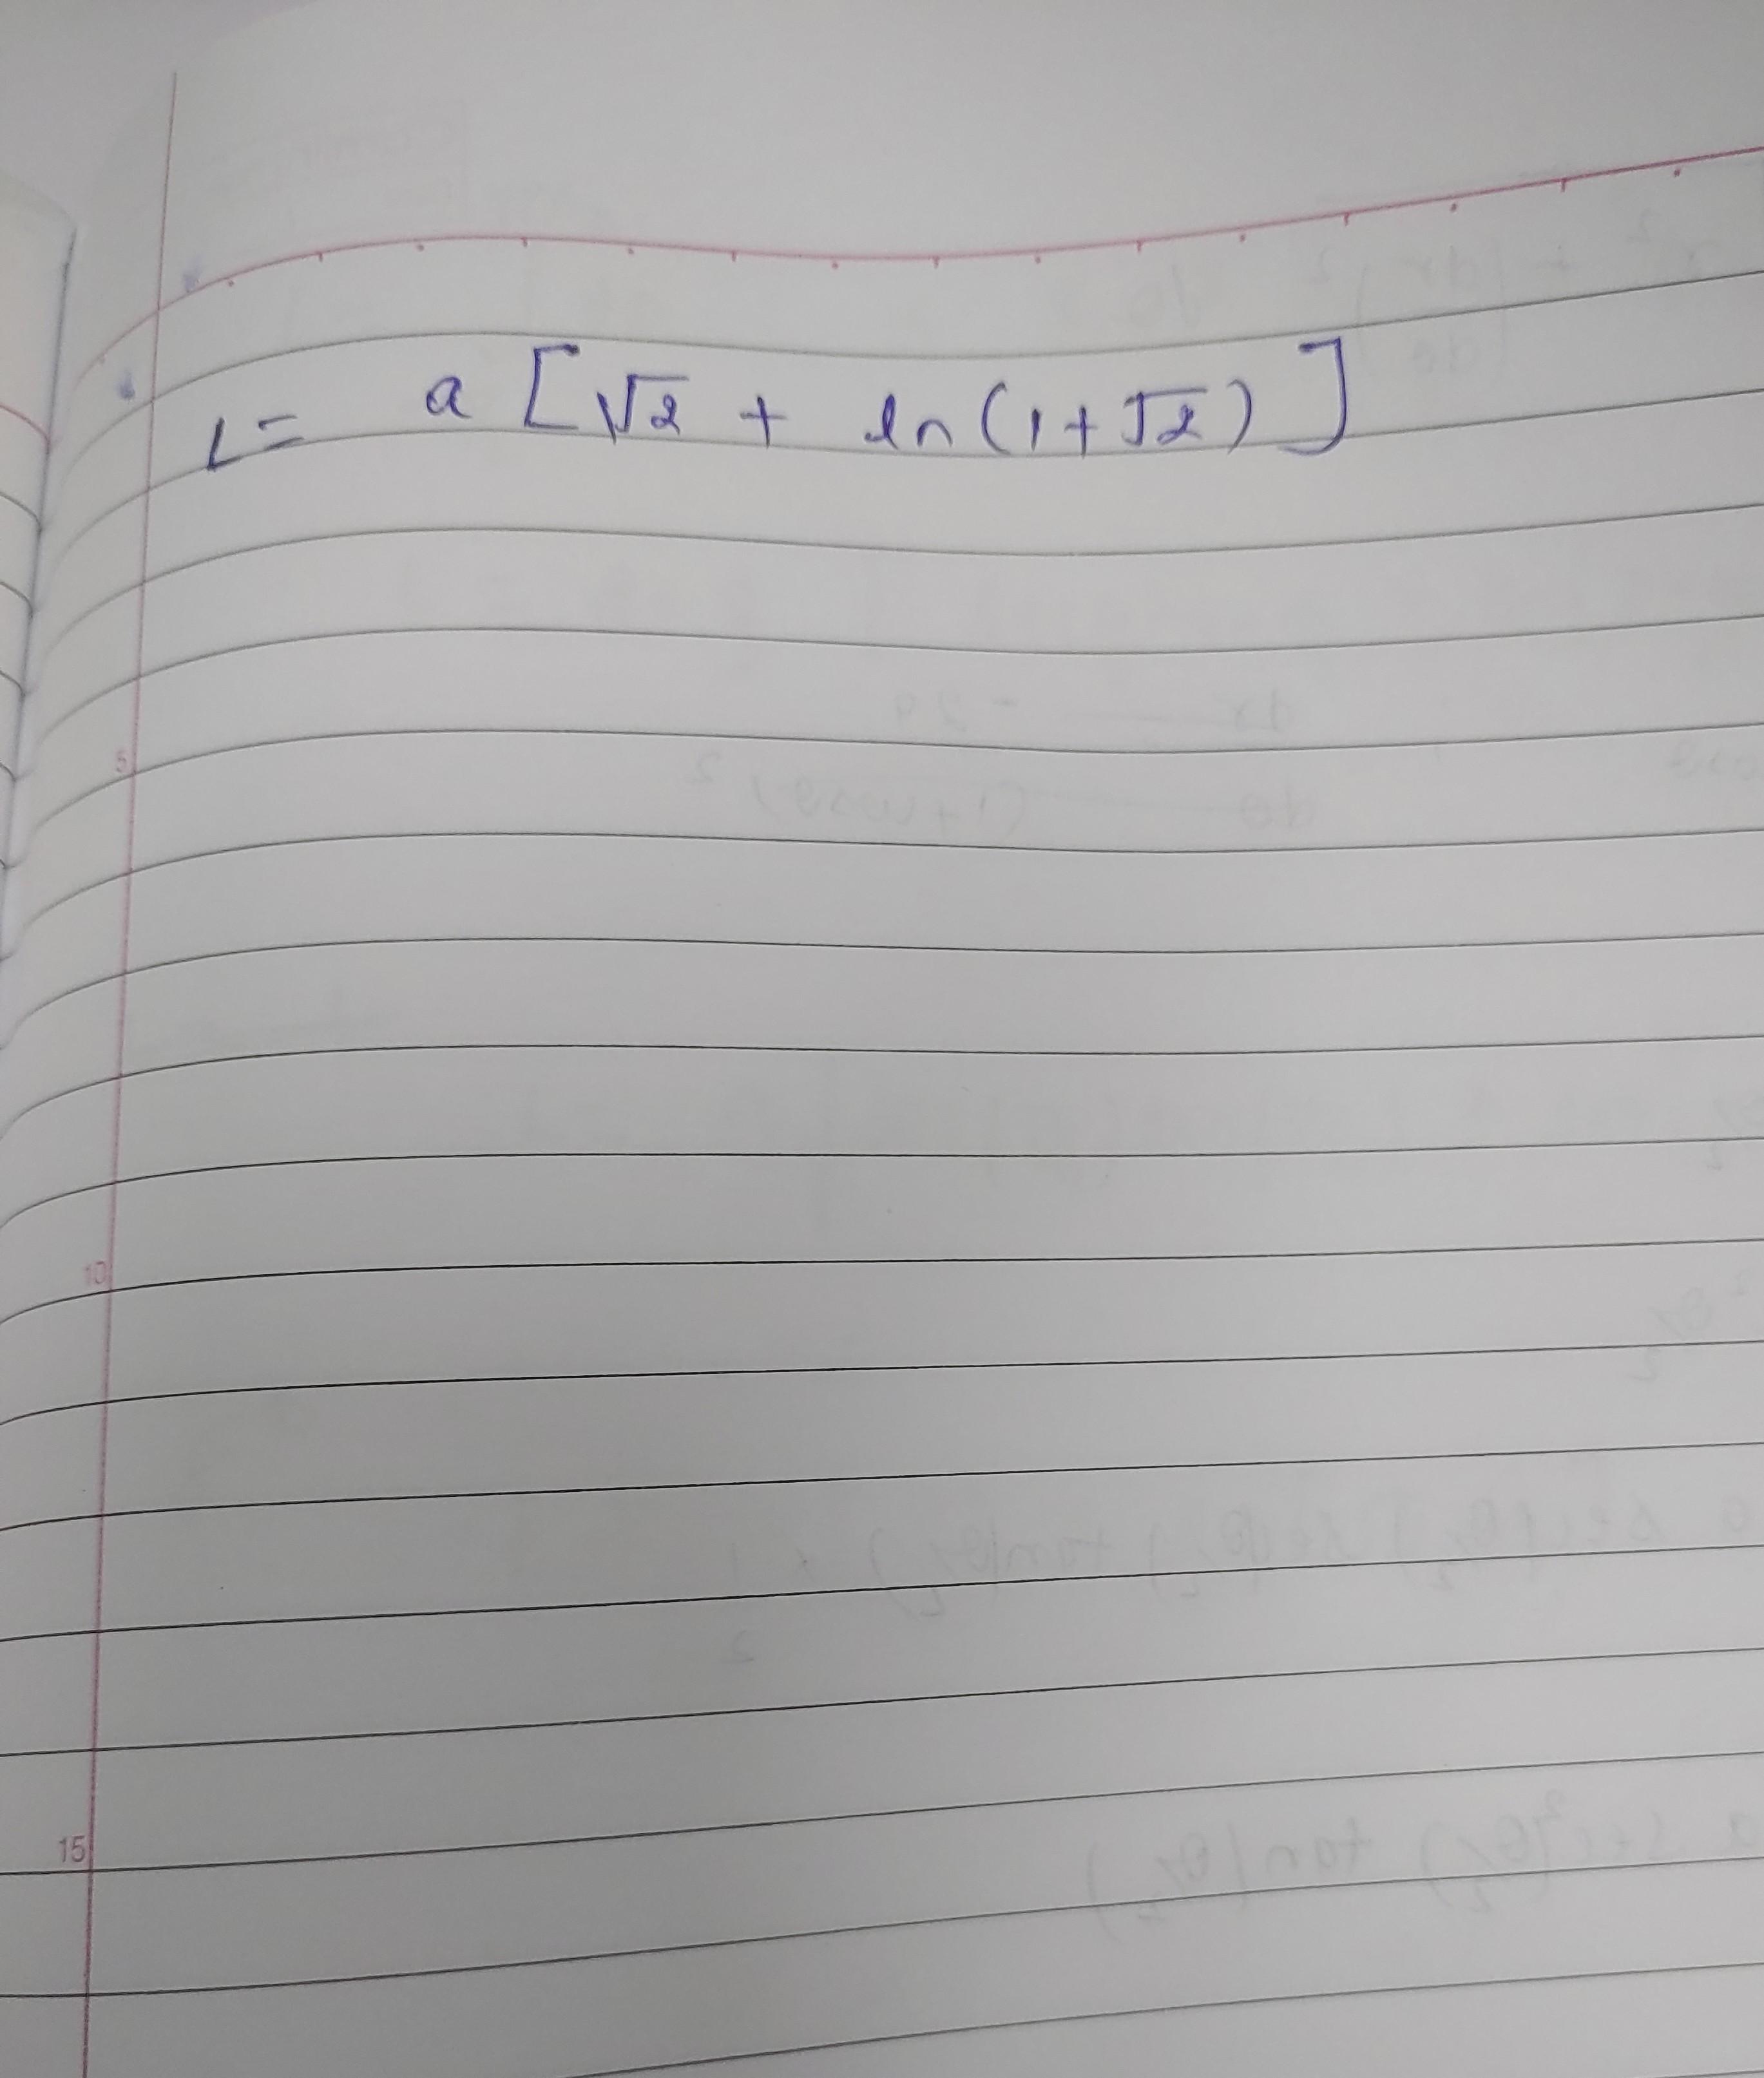 L = a [√2 + ln(1+√2)]
5
10
15